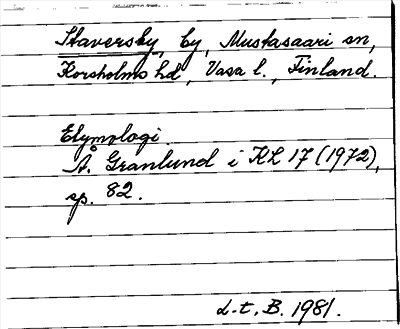 Staversby, by, Mustasaari sn,
Korsholms hd, Vasa l., Finland.
Etymologi.
Å. Granlund i KL 17 (1972),
sp. 82.
L.t.B. 1981.